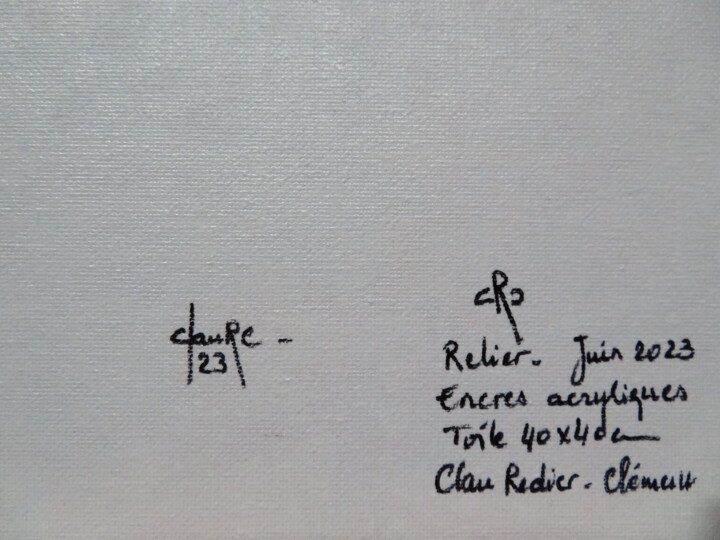 ClauRC -
23
CRD
Relier - Juin 2023
Encres acryliques
Toile 40x40cm
Clau Redier - Clément